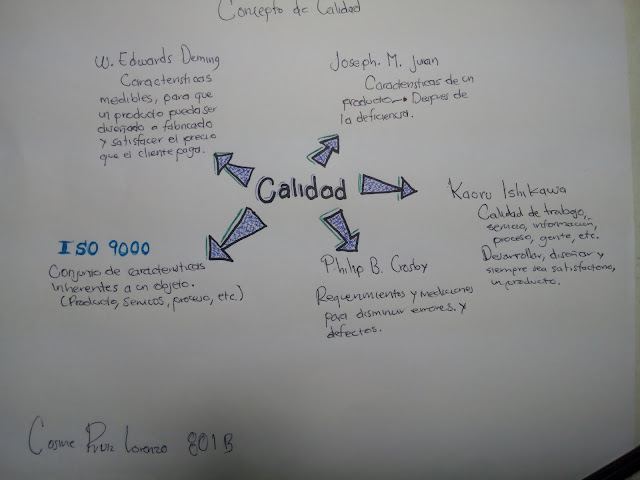 Concepto de Calidad
W. Edwards Deming
Características
medibles, para que
un producto pueda ser
diseñado o fabricado
y satisfacer el precio
que el cliente paga.
Joseph. M. Juran
Características de un
producto Despues de
la deficiencia.
Calidad
Kaoru Ishikawa
Calidad de trabajo,
servicio, información,
proceso, gente, etc.
Desarrollar, diseñar y
siempre sea satisfactorio,
un producto.
ISO 9000
Conjunto de características
inherentes a un objeto.
(Producto, servicios, proceso, etc.)
Philip B. Crosby
Requerimientos y mediciones
para disminuir errores. y
defectos.
Cosme Ruiz Lorenzo 801 B